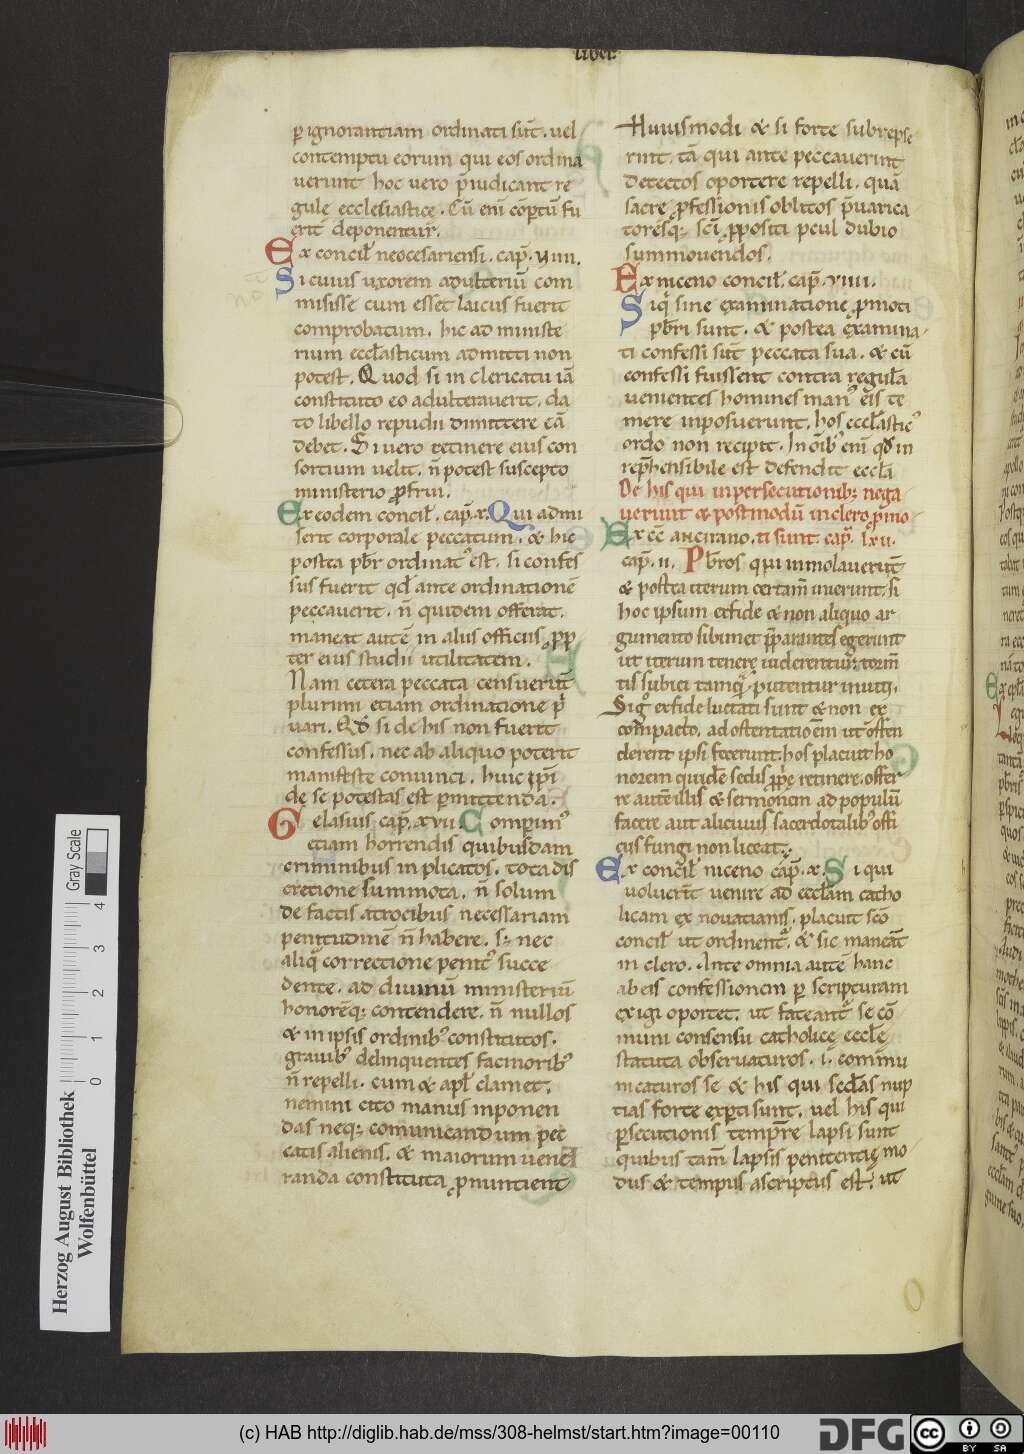 liber
p ignorantiam ordinati sūt. uel
contemptu eorum qui eos ordina
uerunt hoc uero p̄iudicant re
gule ecclesiastice. Cū eni cōp̄tū fu
erit deponentur.
Ex concil̄ neocesariensi. cap̄. VIIII.
Si cuius uxorem adulteriū com
misisse cum esset laicus fuerit
comprobatum. hic ad ministe
rium eccl̄asticum admitti non
potest. Quod si in clericatu iā
constituto eo adulterauerit. da
to libello repudii dimittere eā
debet. Si uero retinere eius con
sortium uelit. n̄ potest suscepto
ministerio ꝓfrui.
Ex eodem concil̄. cap̄. x. Qui admi
serit corporale peccatum. & hic
postea pb̄r ordinat᾽ est. si confes
sus fuerit qd̄ ante ordinationē
peccauerit. n̄ quidem offerat.
maneat autē in aliis officiis ꝓpt
ter eius studii utilitatem.
Nam cetera peccata censuerūt
plurimi etiam ordinatione p̄
uari. Qd̄ si de his non fuerit
confessus. nec ab aliquo poterit
manifeste conuinci. huic ipsi
de se potestas est pmittenda.
Gelasius cap̄. xvii. Comperim᾽
etiam horrendis quibusdam
criminibus inplicatos. tota dis
cretione summota. n̄ solum
de factis atrocibus necessariam
penitudinē n̄ habere. s; nec
aliq̄ correctione penit᾽ succe
dente. ad diuinū ministeriū
honorēq; contendere. n̄ nullos
& in ipsis ordinib᾽ constitutos.
grauib᾽ delinquentes facinorib᾽
n̄ repelli. cum & apl̄ clamet.
nemini cito manus inponen
das neq; comunicandum pec
catis alienis. & maiorum uene
randa constituta ꝓnuntient
Huiusmodi & si forte subrepse
rint. tā qui ante peccauerint
detectos oportere repelli. quā
sacre ꝓfessionis oblitos p̄uarica
toresq; sc̄i ꝓpositi pcul dubio
summouendos.
Ex niceno concil̄. cap̄. VIIII.
Siq̄ sine examinatione ꝓmoti
pb̄ri sunt. & postea examina
ti confessi sūt peccata sua. & cū
confessi fuissent contra regulā
uenientes homines man᾽ eis te
mere inposuerunt. hos eccl̄astic᾽
ordo non recipit. In oīb᾽ eni qd̄ in
rep̄hensibile est defendit eccl̄a
De his qui in persecutionib; nega
uerunt & postmodū in clero p̄mo
Ex cc̄ ancirano. ti sunt. cap̄. lxii.
cap̄. ii. Pb̄ros qui inmolauerūt
& postea iterum certam̄ inierunt. si
hoc ipsum ex fide & non aliquo ar
gumento sibimet p̄parantes egerunt
ut iterum tenere uiderentur. torm̄
tis subici tamq̄ putentur inuiti.
Siq᾽ ex fide luctati sunt & non ex
compacto. ad ostentationem ut osten
derent ipsi fecerunt. hos placuit ho
norem quidē sedis ꝓprie retinere. offer
re autē illis & sermonem ad populū
facere aut alicuius sacerdotalib᾽ offi
ciis fungi non liceat.
Ex concil̄ niceno cap̄. x. Si qui
uoluerīt uenire ad eccl̄am catho
licam ex nouatianis. placuit sc̄o
concil̄ ut ordinent᾽. & sic maneāt
in clero. Ante omnia autē hanc
ab eis confessionem p scripturam
exigi oportet. ut fateant᾽ se cō
muni consensu catholice eccl̄e
statuta obseruaturos. i. commu
nicaturos se & his qui secd̄as nup
tias forte experti sunt. uel his qui
psecutionis tempr̄e lapsi sunt
quibus tam̄ lapsis penitentie mo
dus & tempus ascriptus est. ut
Herzog August Bibliothek
Wolfenbüttel
Gray Scale
0 1 2 3 4
(c) HAB http://diglib.hab.de/mss/308-helmst/start.htm?image=00110
DFG
cc BY SA